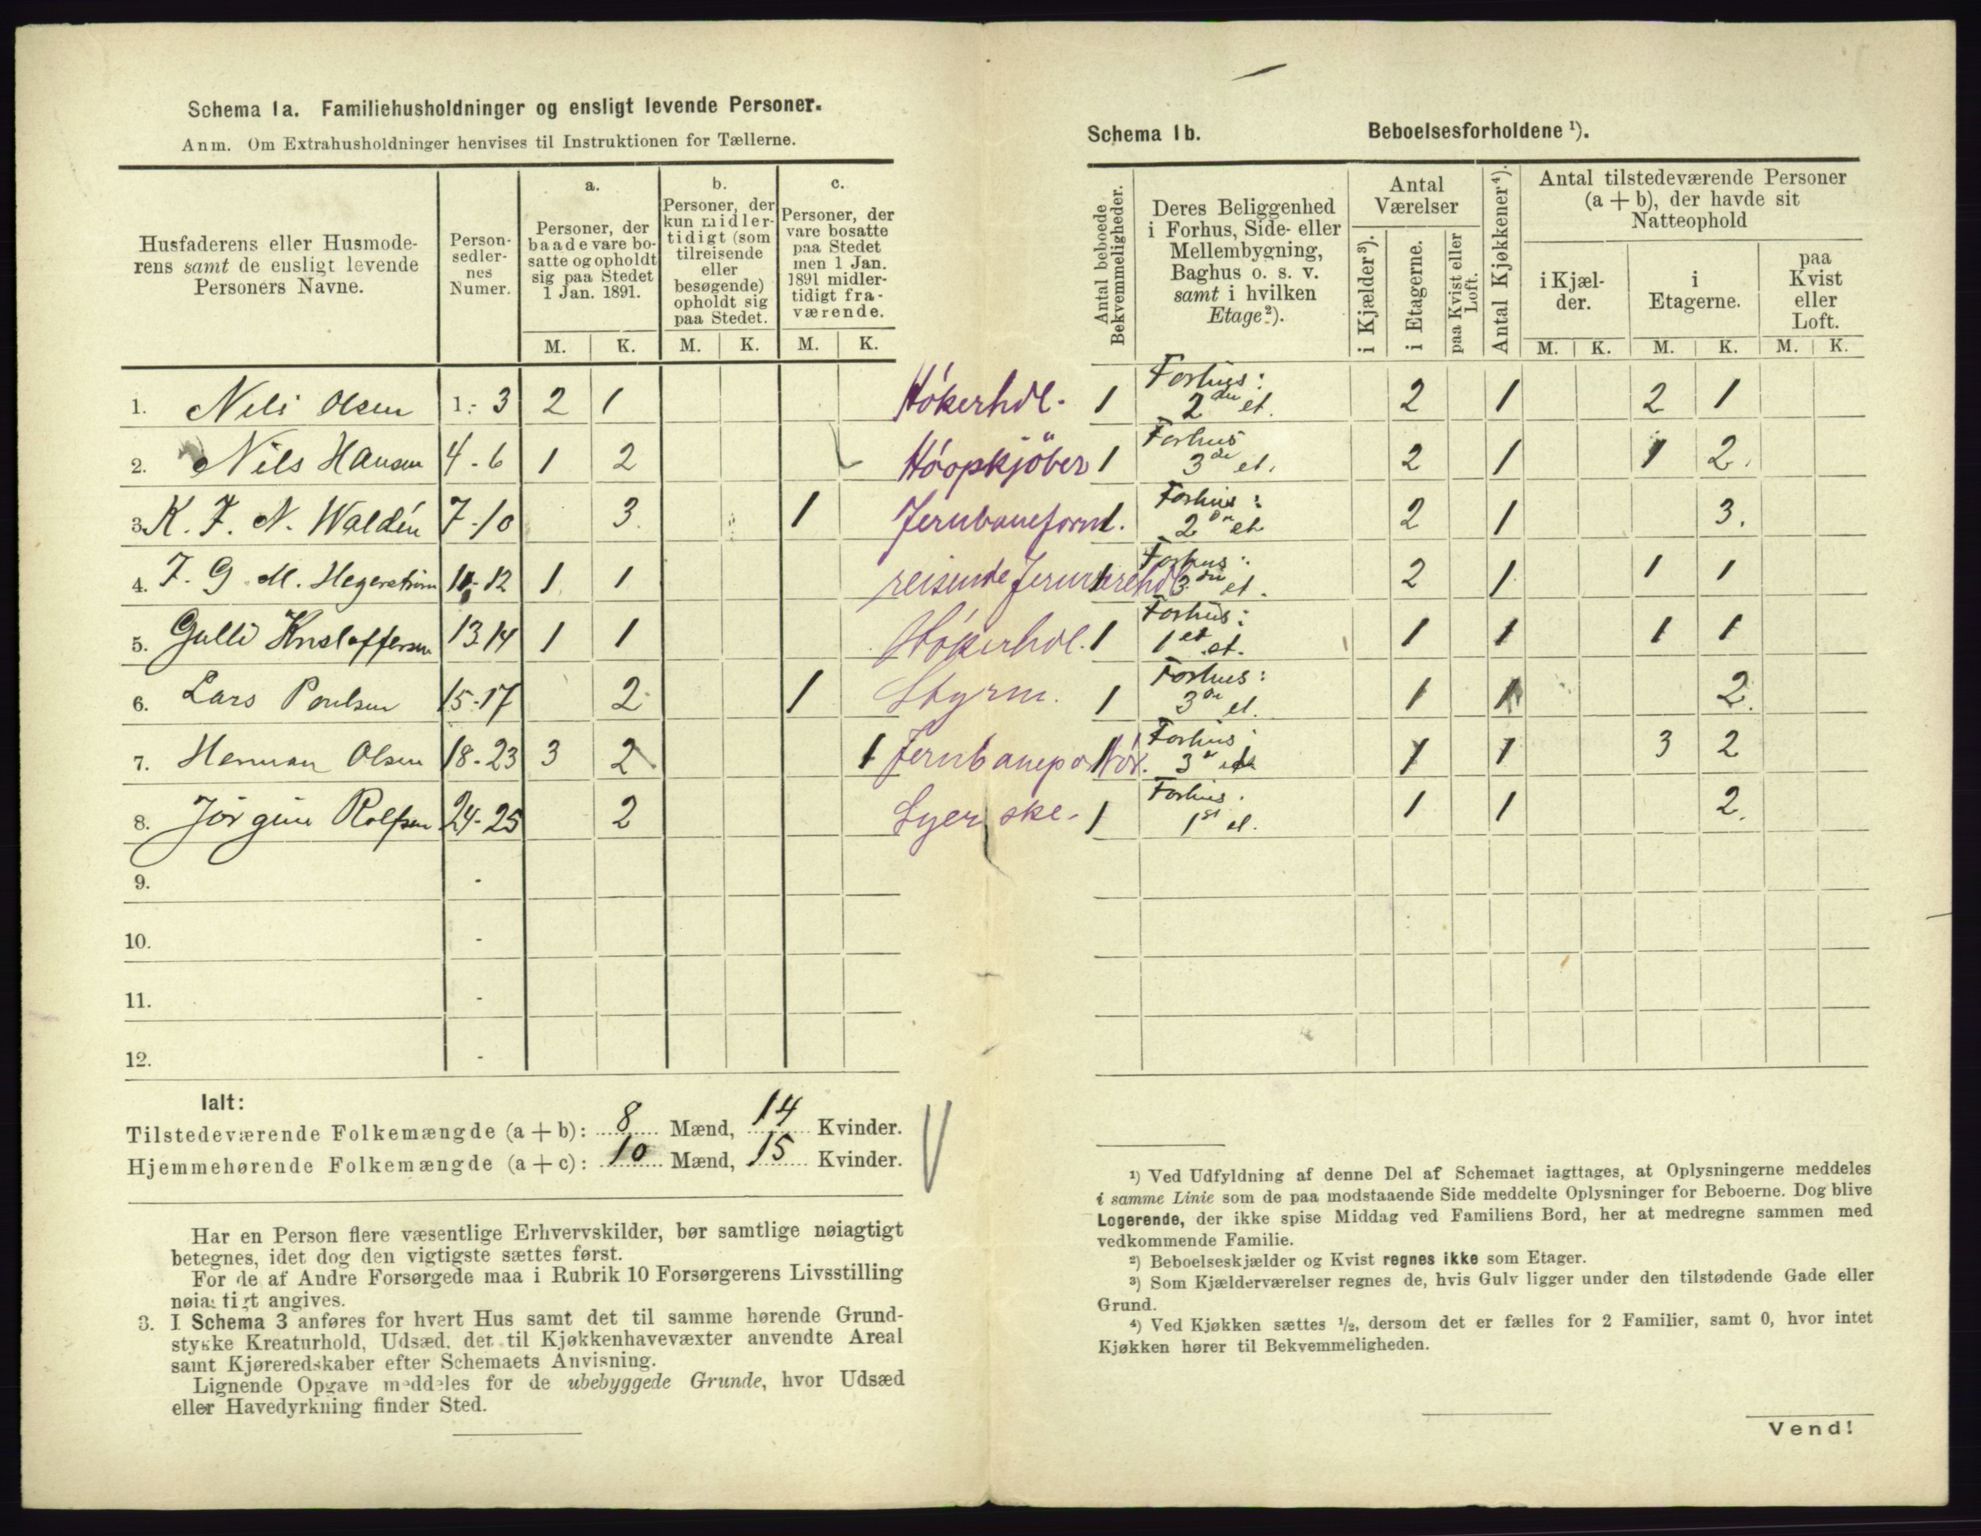 Schema 1a. Familiehusholdninger og ensligt levende Personer.
Anm. Om Extrahusholdninger henvises til Instruktionen for Tællerne.
Husfaderens eller Husmoderens samt de ensligt levende Personers Navne.
Personsedlernes Numer.
a.
Personer, der baade vare bosatte og opholdt sig paa Stedet 1 Jan. 1891.
b.
Personer, der kun midlertidigt (som tilreisende eller besøgende) opholdt sig paa Stedet.
c.
Personer, der vare bosatte paa Stedet men 1 Jan. 1891 midlertidigt fraværende.
M. K. M. K. M. K.
1. Nils Olsen 1.- 3 2 1 Høkerhdl.
2. Nils Hansen 4 - 6 1 2
3. K. F. N. Waldén 7 - 10 3 1 Jernbaneform.
4. F. G. M. Hegerstrøm 11 - 12 1 1 reisende
5. Gulli Kristoffersen 13 14 1 1 Høkerhdl.
6. Lars Poulsen 15 - 17 2 1 Styrm.
7. Herman Olsen 18 - 23 3 2 1 Jernbaneportør.
8. Jørgine Rolfsen 24 - 25 2 Syerske.
9. -
10. -
11. -
12. -
Ialt:
Tilstedeværende Folkemængde (a + b): 8 Mænd, 14 Kvinder.
Hjemmehørende Folkemængde (a + c): 10 Mænd, 15 Kvinder.
Har en Person flere væsentlige Erhvervskilder, bør samtlige nøiagtigt
betegnes, idet dog den vigtigste sættes først.
For de af Andre Forsørgede maa i Rubrik 10 Forsørgerens Livsstilling
nøiagtigt angives.
3. I Schema 3 anføres for hvert Hus samt det til samme hørende Grund-
stykke Kreaturhold, Udsæd, det til Kjøkkenhavevæxter anvendte Areal
samt Kjøreredskaber efter Schemaets Anvisning.
Lignende Opgave meddeles for de ubebyggede Grunde, hvor Udsæd
eller Havedyrkning finder Sted.
Schema 1b. Beboelsesforholdene ¹).
Antal beboede Bekvemmeligheder.
Deres Beliggenhed i Forhus, Side- eller Mellembygning, Baghus o. s. v. samt i hvilken Etage ²).
Antal Værelser
i Kjælder ³).
i Etagerne.
paa Kvist eller Loft.
Antal Kjøkkener ⁴).
Antal tilstedeværende Personer (a + b), der havde sit Natteophold
i Kjælder.
i Etagerne.
paa Kvist eller Loft.
M. K. M. K. M. K.
1 Forhus: 2den et. 2 1 2 1
1 Forhus 3de et. 2 1 1 2
1. Forhus: 2den et 2 1 3.
1 Forhus: 3die et. 2 1 1 1
1 Forhus: 1ste et. 1 1 1 1
1 Forhus: 3de et. 1 1 2.
1 Forhus 3de et 1 1 3 2
1 Forhus. 1st et. 1 1 2.
¹) Ved Udfyldning af denne Del af Schemaet iagttages, at Oplysningerne meddeles
i samme Linie som de paa modstaaende Side meddelte Oplysninger for Beboerne. Dog blive
Logerende, der ikke spise Middag ved Familiens Bord, her at medregne sammen med
vedkommende Familie.
²) Beboelseskjælder og Kvist regnes ikke som Etager.
³) Som Kjælderværelser regnes de, hvis Gulv ligger under den tilstødende Gade eller
Grund.
⁴) Ved Kjøkken sættes ½, dersom det er fælles for 2 Familier, samt 0, hvor intet
Kjøkken hører til Bekvemmeligheden.
Vend!